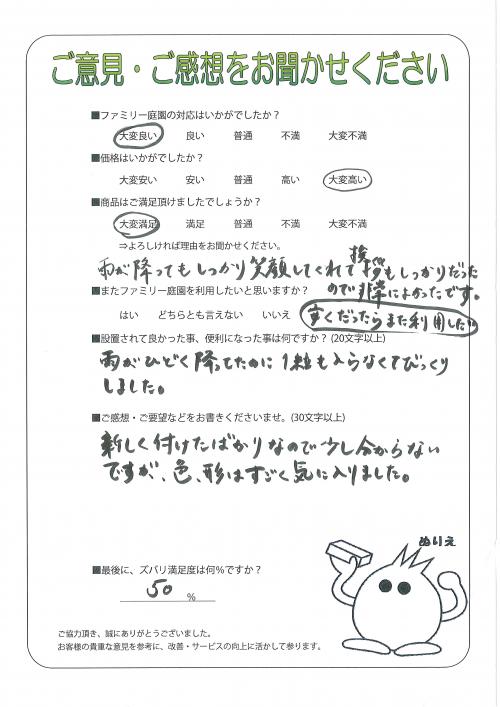 ご意見・ご感想をお聞かせください
■ファミリー庭園の対応はいかがでしたか？
大変良い 良い 普通 不満 大変不満
■価格はいかがでしたか？
大変安い 安い 普通 高い 大変高い
■商品はご満足頂けましたでしょうか？
大変満足 満足 普通 不満 大変不満
⇒よろしければ理由をお聞かせください。
雨が降ってもしっかり笑顔してくれて挨拶もしっかりだった
ので非常によかったです。
■またファミリー庭園を利用したいと思いますか？
はい どちらとも言えない いいえ
すぐだったらまた利用したい
■設置されて良かった事、便利になった事は何ですか？(20文字以上)
雨がひどく降ってたのに1粒も入らなくてびっくり
しました。
■ご感想・ご要望などをお書きくださいませ。(30文字以上)
新しく付けたばかりなので少し分からない
ですが、色、形はすごく気に入りました。
ぬりえ
■最後に、ズバリ満足度は何％ですか？
50 ％
ご協力頂き、誠にありがとうございました。
お客様の貴重な意見を参考に、改善・サービスの向上に活かして参ります。